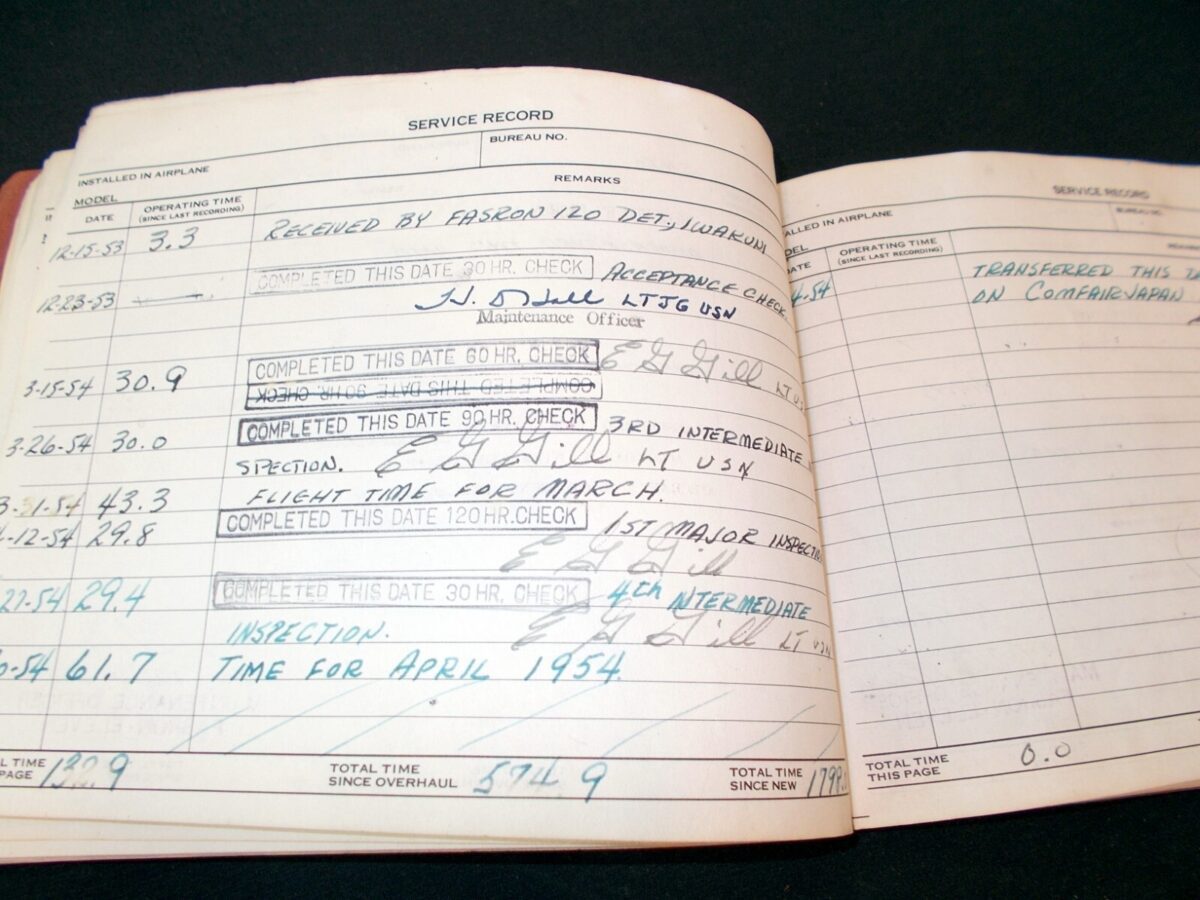 SERVICE RECORD
INSTALLED IN AIRPLANE
BUREAU NO.
MODEL
REMARKS
DATE
OPERATING TIME
(SINCE LAST RECORDING)
12-15-53 3.3 RECEIVED BY FASRON 120 DET, IWAKUNI
COMPLETED THIS DATE 30 HR. CHECK ACCEPTANCE CHECK.
12-23-53 LTJG USN
Maintenance Officer
COMPLETED THIS DATE 60 HR. CHECK E G Gill LT US
3-15-54 30.9
COMPLETED THIS DATE 90 HR. CHECK
COMPLETED THIS DATE 90 HR. CHECK 3RD INTERMEDIATE
3-26-54 30.0 SPECTION. E G Gill LT USN
3-31-54 43.3 FLIGHT TIME FOR MARCH.
-12-54 29.8 COMPLETED THIS DATE 120 HR. CHECK 1ST MAJOR INSPECTI
E G Gill
27-54 29.4 COMPLETED THIS DATE 30 HR. CHECK 4th INTERMEDIATE
INSPECTION. E G Gill LT USN
0-54 61.7 TIME FOR APRIL 1954.
L TIME
PAGE
TOTAL TIME
SINCE OVERHAUL 574.9
TOTAL TIME
SINCE NEW
SERVICE RECORD
ALLED IN AIRPLANE
BUREAU NO.
DEL
DATE
OPERATING TIME
(SINCE LAST RECORDING)
4-54 TRANSFERRED THIS D
ON COMFAIRJAPAN
TOTAL TIME
THIS PAGE 0.0